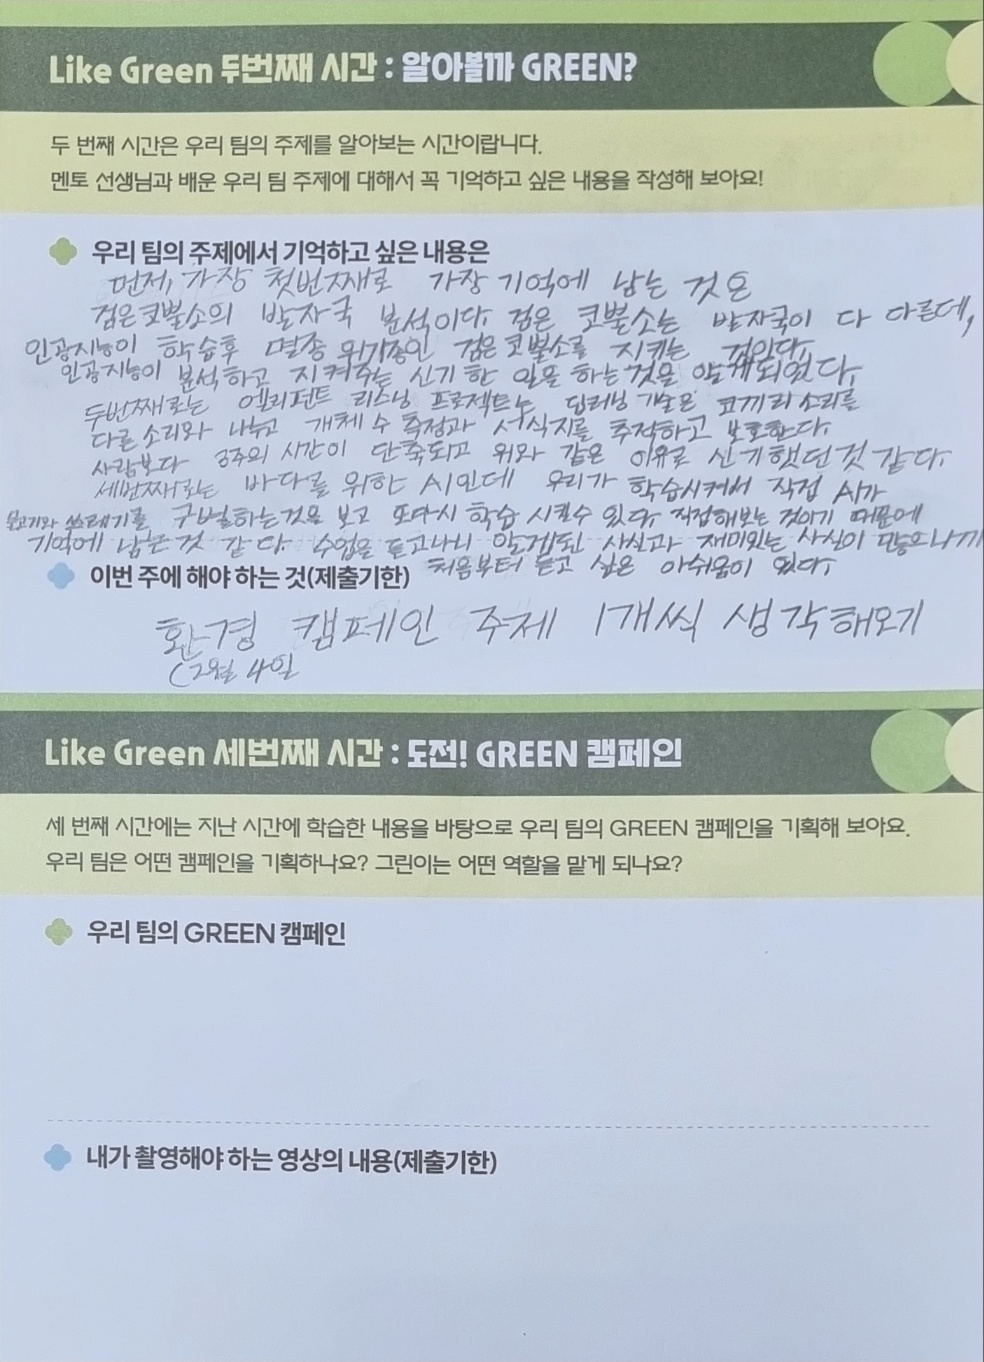 Like Green 두번째 시간 : 알아볼까 GREEN?
두 번째 시간은 우리 팀의 주제를 알아보는 시간이랍니다.
멘토 선생님과 배운 우리 팀 주제에 대해서 꼭 기억하고 싶은 내용을 작성해 보아요!
우리 팀의 주제에서 기억하고 싶은 내용은
먼저, 가장 첫번째로 가장 기억에 남는 것은
검은코뿔소의 발자국 분석이다. 검은 코뿔소는 발자국이 다 다른데,
인공지능이 학습후 멸종 위기종인 검은코뿔소를 지키는 것이다.
인공지능이 분석하고 지켜주는 신기한 일을 하는 것을 알게되었다.
두번째로는 엘리펀트 리스닝 프로젝트는 딥러닝 기술은 코끼리 소리를
다른 소리와 나누고 개체 수 측정과 서식지를 추적하고 보호한다.
사람보다 3주의 시간이 단축되고 위와 같은 이유로 신기했던것 같다.
세번째로는 바다를 위한 AI인데 우리가 학습시켜서 직접 AI가
물고기와 쓰레기를 구별하는것을 보고 또다시 학습 시킬수 있다. 직접해보는 것이기 때문에
기억에 남는것 같다. 수업을 듣고나니 알게된 사실과 재미있는 사실이 많으니까
처음부터 듣고 싶은 아쉬움이 있다.
이번 주에 해야 하는 것(제출기한)
환경 캠페인 주제 1개씩 생각해오기
(2월 4일
Like Green 세번째 시간 : 도전! GREEN 캠페인
세 번째 시간에는 지난 시간에 학습한 내용을 바탕으로 우리 팀의 GREEN 캠페인을 기획해 보아요.
우리 팀은 어떤 캠페인을 기획하나요? 그린이는 어떤 역할을 맡게 되나요?
우리 팀의 GREEN 캠페인
내가 촬영해야 하는 영상의 내용(제출기한)